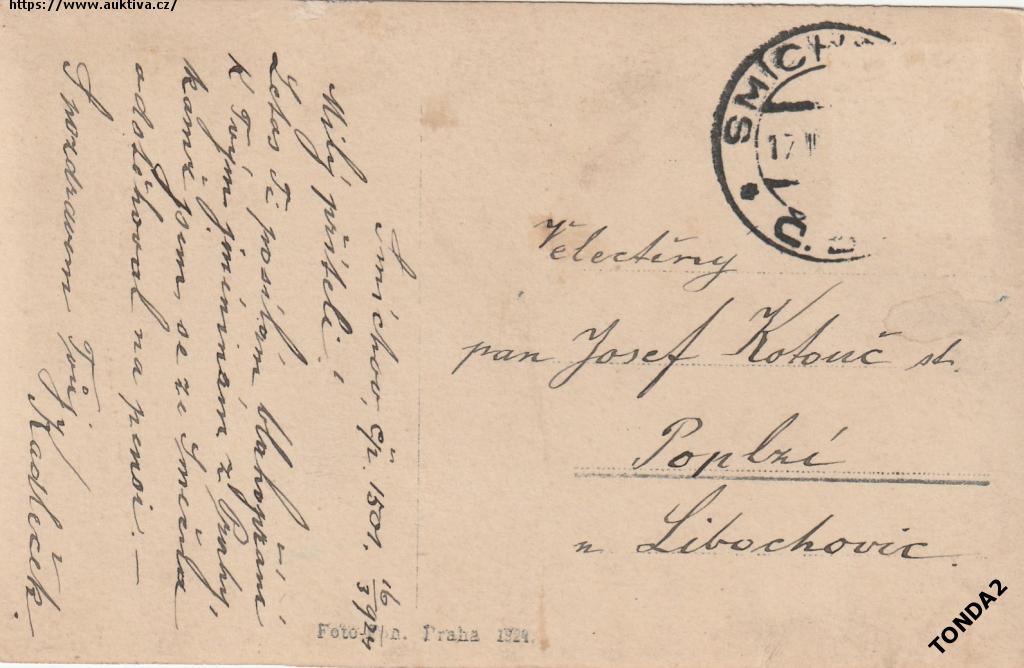 https://www.auktiva.cz/
Smíchov, čp. 1501. 16/3 1924
Milý příteli!
Letos Ti posílám blahopřání
k Tvým jmeninám z Prahy,
kamž jsem se ze Smečna
odstěhoval na pensi. —
S pozdravem Tvůj
Kadleček.
SMÍCHO
17
Velectěný
pan Josef Kotouč st.
Poplzí
u Libochovic
Praha 1924.
TONDA2